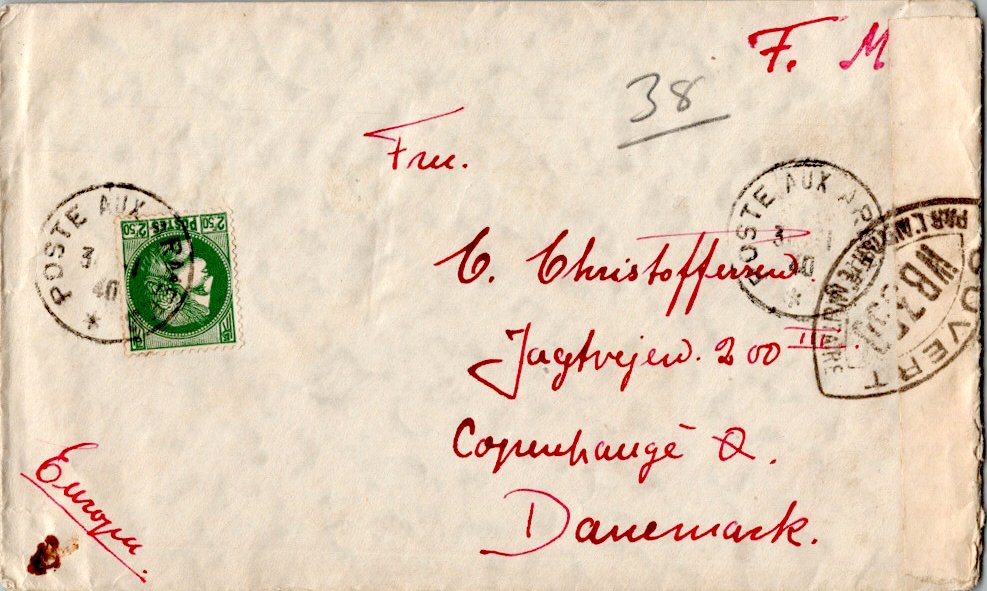 F. M
38
Fru.
C. Christoffersen.
Jagtvejen. 200 III.
Copenhague Ø.
Danemark.
Europa.
POSTE AUX ARMEES
3
40
*
2.50 POSTES 2.50
POSTE AUX AR
3
40
*
OUVERT
PAR L'AUTORITE MILITAIRE
WB